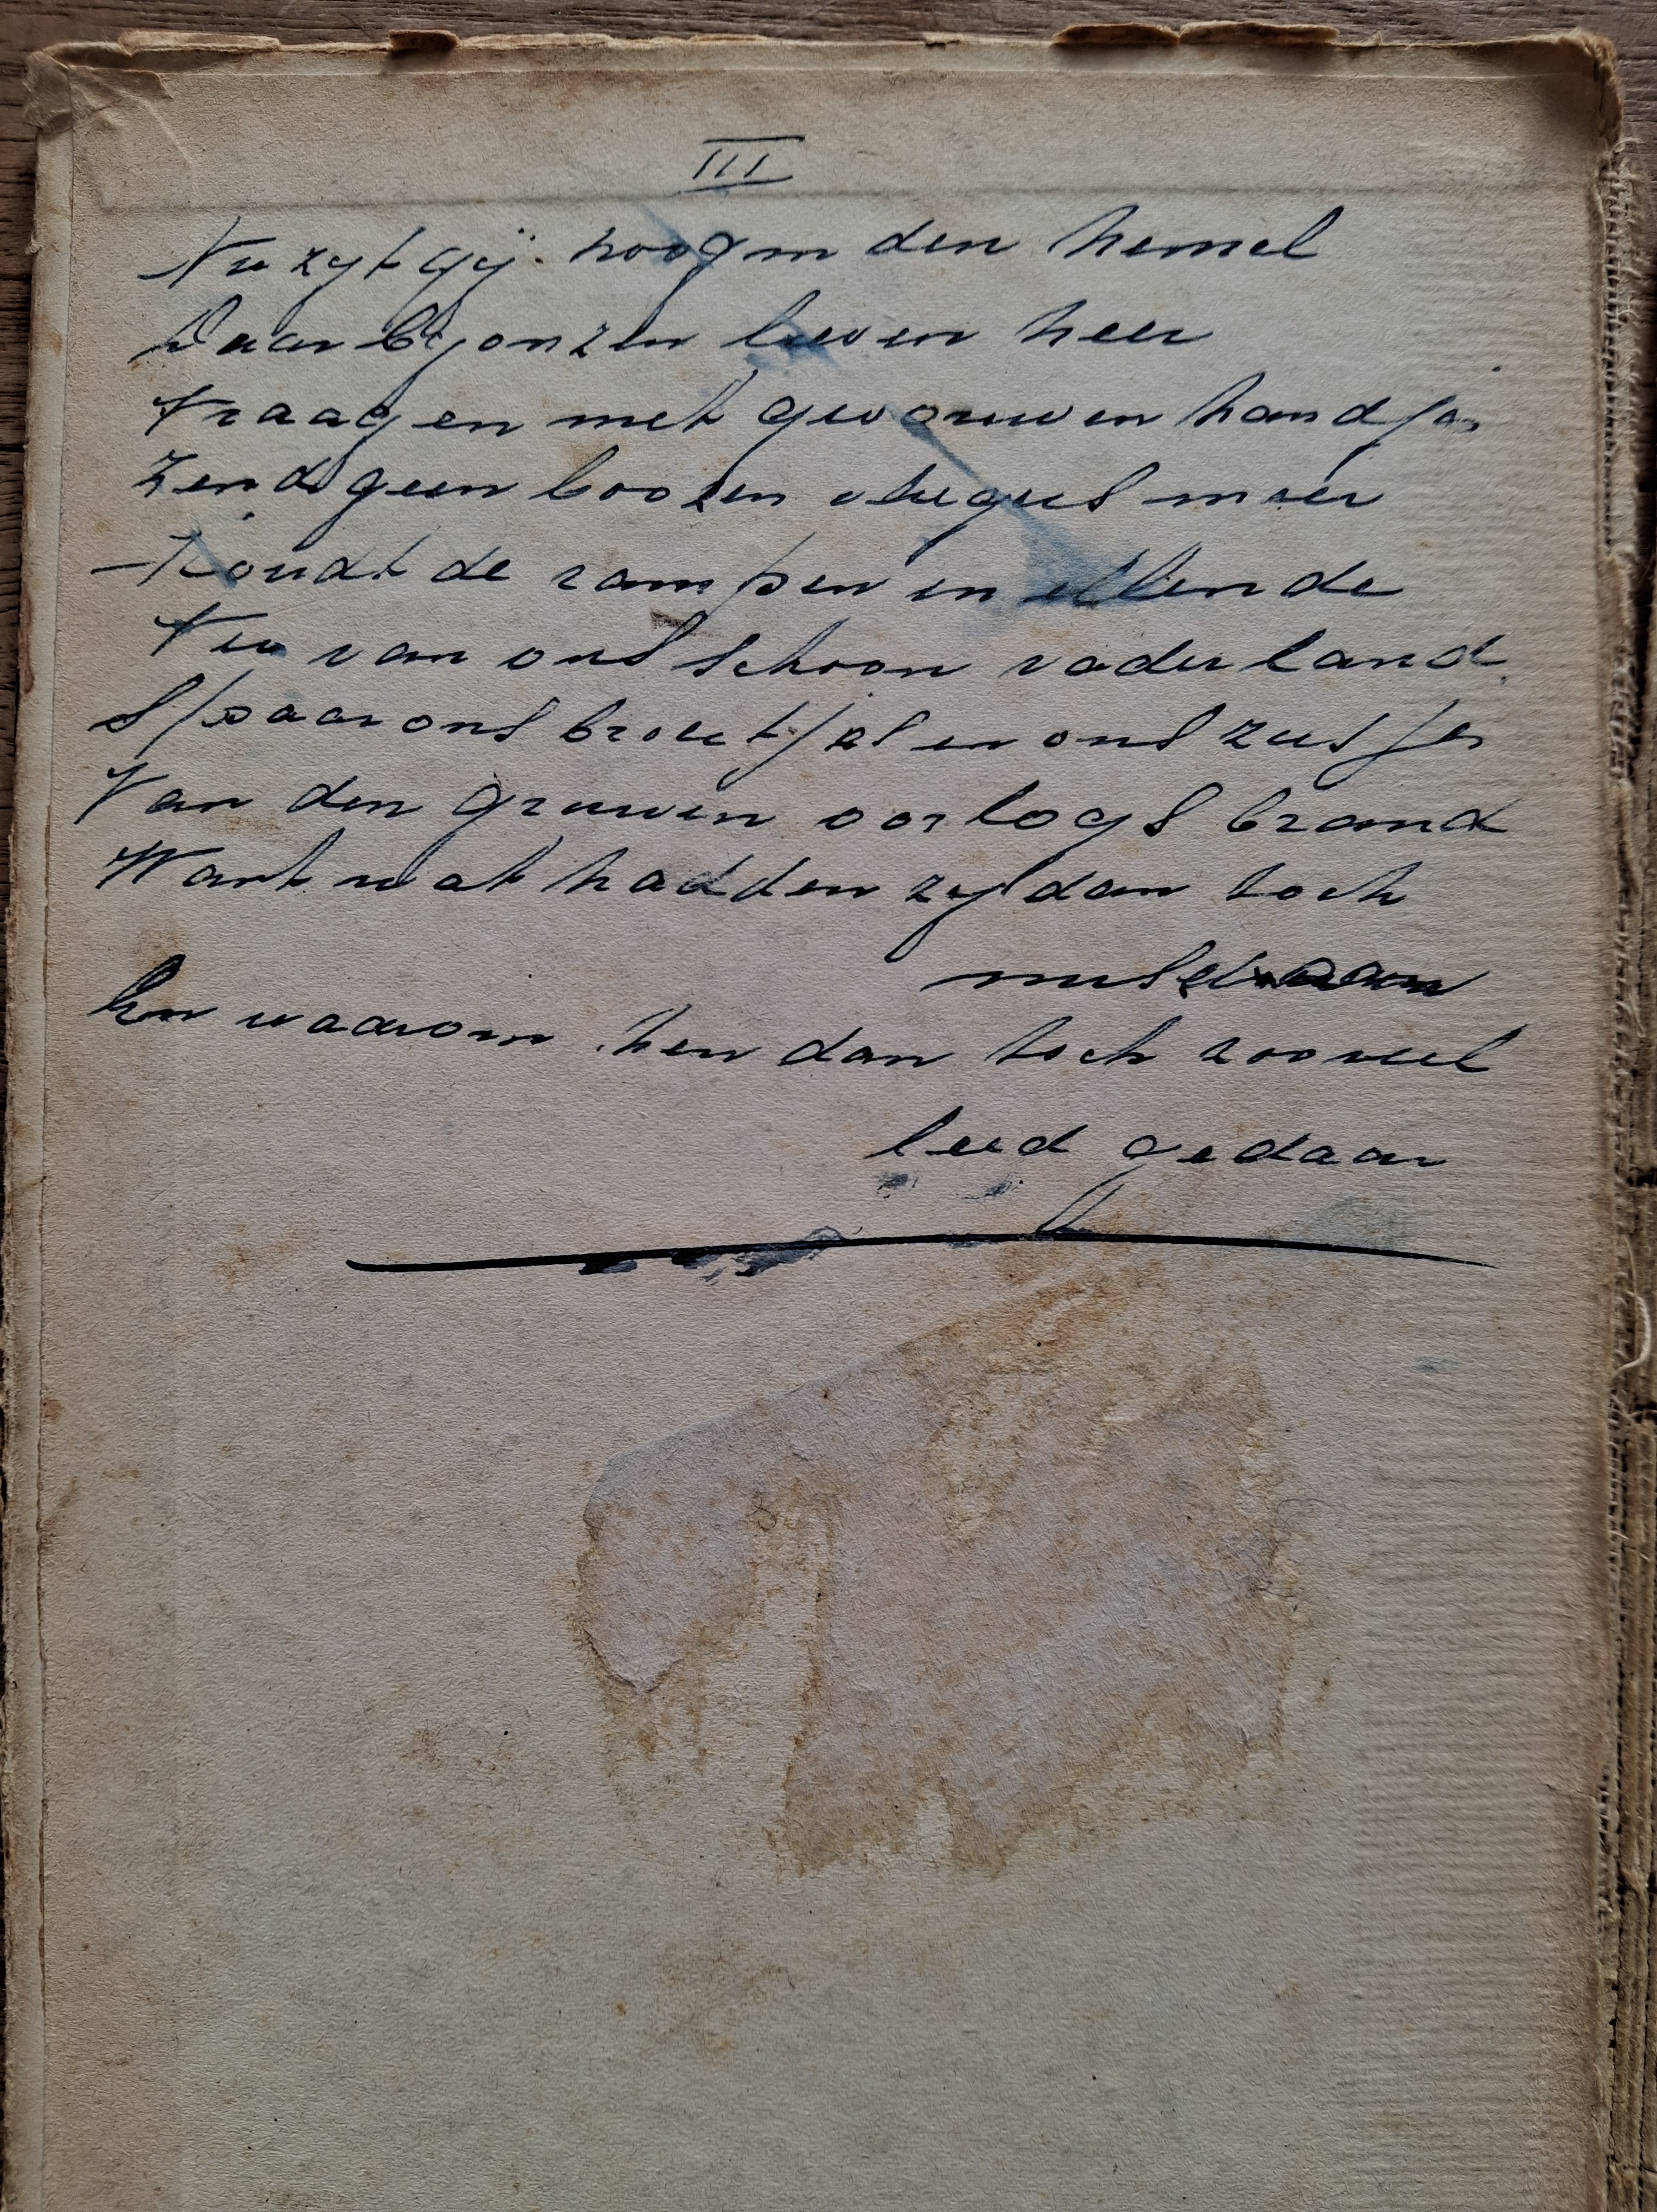 III
Nu zyt gij hoog in den hemel
Daar by onzen lieven heer
Vraag en met gevouwen handjes
Zend geen boozen vliegers meer
Houdt de rampen en ellende
Nu van ons schoon vaderland.
Spaar ons broertjes en ons zusjes
Van den gruwen oorlogs brand
Want wat hadden zy dan toch
misdaan
En waarom hen dan toch zooveel
leed gedaan